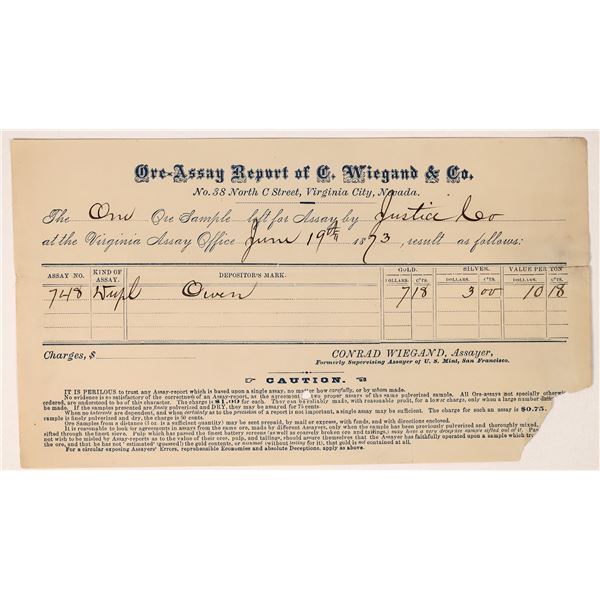 Ore-Assay Report of C. Wiegand & Co.
No. 38 North C Street, Virginia City, Nevada.
The One Ore Sample left for Assay by Justice Co
at the Virginia Assay Office June 19th 1873, result as follows:
ASSAY NO. KIND OF ASSAY. DEPOSITOR'S MARK. GOLD. SILVER. VALUE PER TON
DOLLARS. C'TS. DOLLARS. C'TS. DOLLARS. C'TS.
748 Dupl Owen 7 18 3 00 10 18
Charges, $
CONRAD WIEGAND, Assayer,
Formerly Supervising Assayer of U. S. Mint, San Francisco.
CAUTION.
IT IS PERILOUS to trust any Assay-report which is based upon a single assay, no matter how carefully, or by whom made.
No evidence is so satisfactory of the correctness of an Assay-report, as the agreement two proper assays of the same pulverized sample. All Ore-assays not specially otherwise
ordered, are understood to be of this character. The charge is $1.00 each. They can be reliably made, with reasonable profit, for a lower charge, only when a large number
made. If the samples presented are finely pulverized and DRY, they may be assayed for 75 cents.
When no interests are dependent, and when certainty as to the precision of a report is not important, a single assay may be sufficient. The charge for such an assay is $0.75.
sample is finely pulverized and dry, the charge is 50 cents.
Ore Samples from a distance (3 oz. is a sufficient quantity) may be sent prepaid, by mail or express, with funds, and with directions enclosed.
It is reasonable to look for agreements in assays from the same ore, made by different Assayers, only when the sample has been previously pulverized and thoroughly mixed,
sifted through the finest sieve. Pulp which has passed the finest battery screens (as well as coarsely broken ore and tailings,) may have a very deceptive sample sifted out of it.
not wish to be misled by Assay-reports as to the value of their ores, pulp, and tailings, should assure themselves that the Assayer has faithfully operated upon a sample which
the ore, and that he has not "estimated" (guessed) the gold contents, or assumed (without testing for it), that gold is not contained at all.
For a circular exposing Assayers' Errors, reprehensible Economies and absolute Deceptions, apply as above.